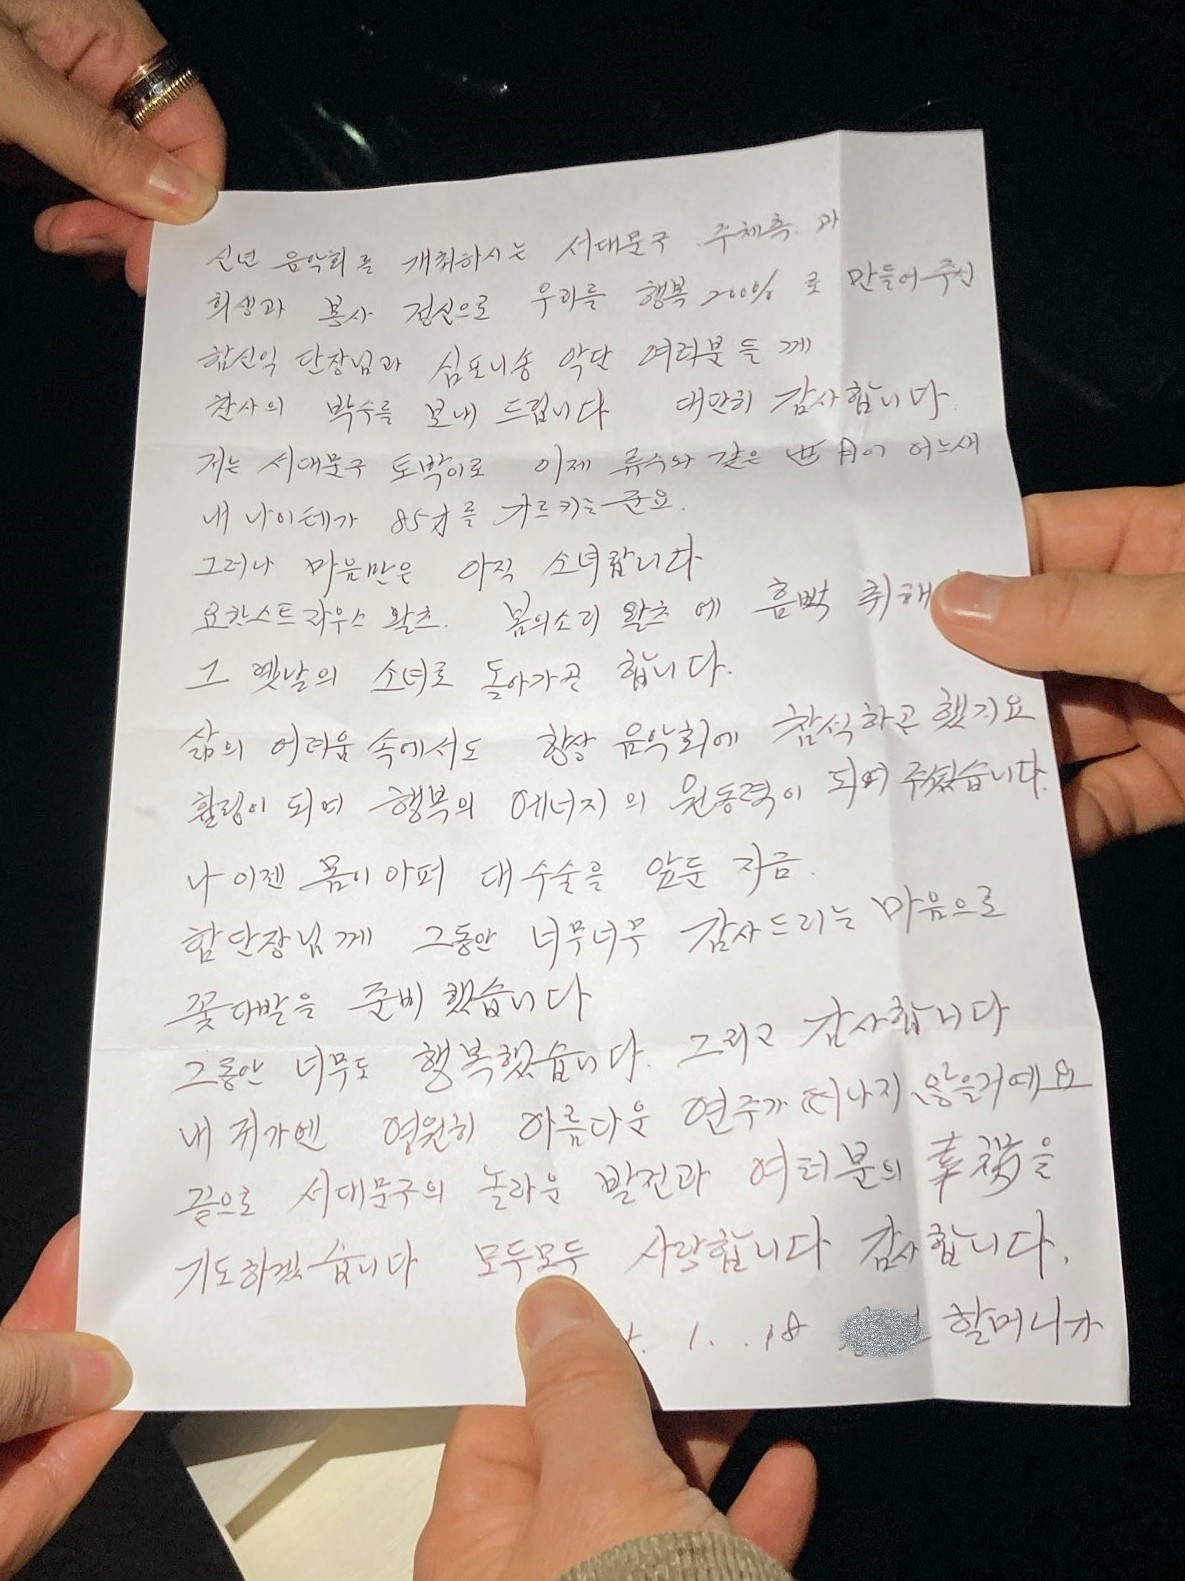 신년 음악회를 개최하시는 서대문구 주체측 과
희생과 봉사 정신으로 우리를 행복 200% 로 만들어주신
함신익 단장님과 심포니송 악단 여러분들께
찬사의 박수를 보내 드립니다 대단히 감사합니다.
저는 서대문구 토박이로 이제 류수와 같은 세月이 어느새
내 나이테가 85才를 가르키는군요.
그러나 마음만은 아직 소녀랍니다
요한스트라우스 왈츠. 봄의소리 왈츠에 흠뻑 취해
그 옛날의 소녀로 돌아가곤 합니다.
삶의 어려움 속에서도 항상 음악회에 참석하곤 했지요
활림이 되며 행복의 에너지의 원동력이 되여 주셨습니다.
나 이젠 몸이 아퍼 대수술을 앞둔 지금.
함단장님께 그동안 너무너무 감사드리는 마음으로
꽃다발을 준비했습니다
그동안 너무도 행복했습니다. 그리고 감사합니다
내 귀가엔 영원히 아름다운 연주가 떠나지 않을거예요
끝으로 서대문구의 놀라운 발전과 여러분의 幸福을
기도하겠습니다 모두모두 사랑합니다 감사합니다.
1. .18 할머니가